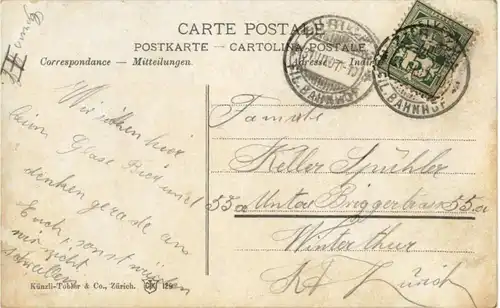 CARTE POSTALE
POSTKARTE - CARTOLINA POSTALE
Correspondance - Mitteilungen. Adresse - Indir
FIL. BAHNHOF
FIL. BAHNHOF
Wir sitzen hier
beim Glase Bier und
denken gerade an
Euch, sonst würden
wir nicht
schreiben
Familie
Keller Spühler
55a Untere Briggerstrasse 55a
Winterthur
Kt Zürich
Künzli-Tobler & Co., Zürich.